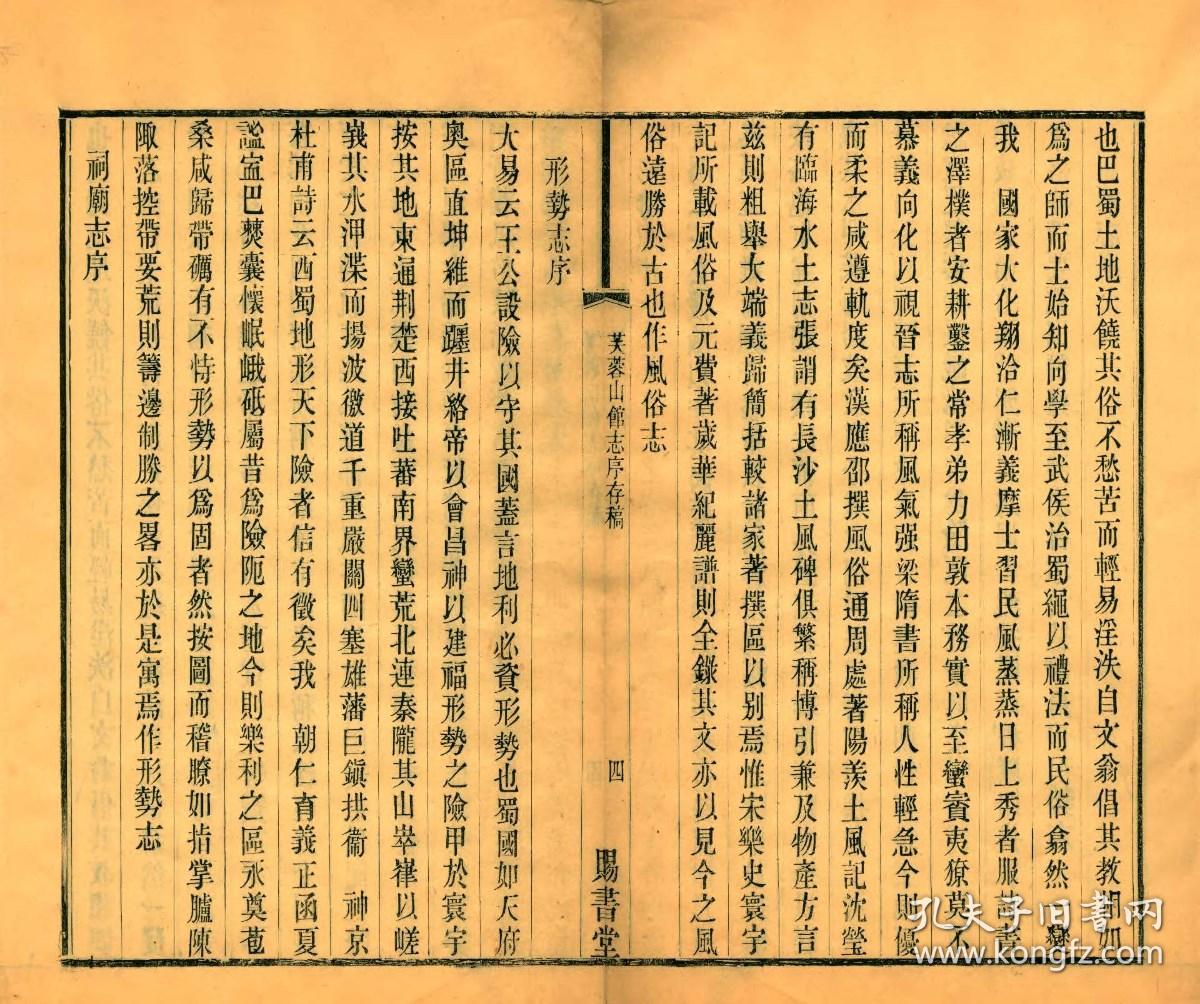 也巴蜀土地沃饒其俗不愁苦而輕易淫泆自文翁倡其教相如
爲之師而士始知向學至武侯治蜀繩以禮法而民俗翕然變
我 國家大化翔洽仁漸義摩士習民風蒸蒸日上秀者服詩書
之澤樸者安耕鑿之常孝弟力田敦本務實以至蠻賨夷獠莫不
慕義向化以視晉志所稱風氣强梁隋書所稱人性輕急今則優
而柔之咸遵軌度矣漢應邵撰風俗通周處著陽羨土風記沈瑩
有臨海水土志張謂有長沙土風碑俱繁稱博引兼及物產方言
茲則粗舉大端義歸簡括較諸家著撰區以别焉惟宋樂史寰宇
記所載風俗及元費著歲華紀麗譜則全錄其文亦以見今之風
俗遠勝於古也作風俗志
形勢志序
大易云王公設險以守其國蓋言地利必資形勢也蜀國如天府
奧區直坤維而躔井絡帝以會昌神以建福形勢之險甲於寰宇
按其地東通荆楚西接吐蕃南界蠻荒北連秦隴其山崒嵂以嵯
峩其水浺渫而揚波徼道千重嚴關四塞雄藩巨鎭拱衞 神京
杜甫詩云西蜀地形天下險者信有徵矣我 朝仁育義正函夏
謐寍巴僰囊懷岷峨砥屬昔爲險阨之地今則樂利之區永奠苞
桑咸歸帶礪有不恃形勢以爲固者然按圖而稽瞭如指掌臚陳
陬落控帶要荒則籌邊制勝之畧亦於是寓焉作形勢志
祠廟志序
芙蓉山館志序存稿
四
賜書堂
孔夫子旧书网
www.kongfz.com